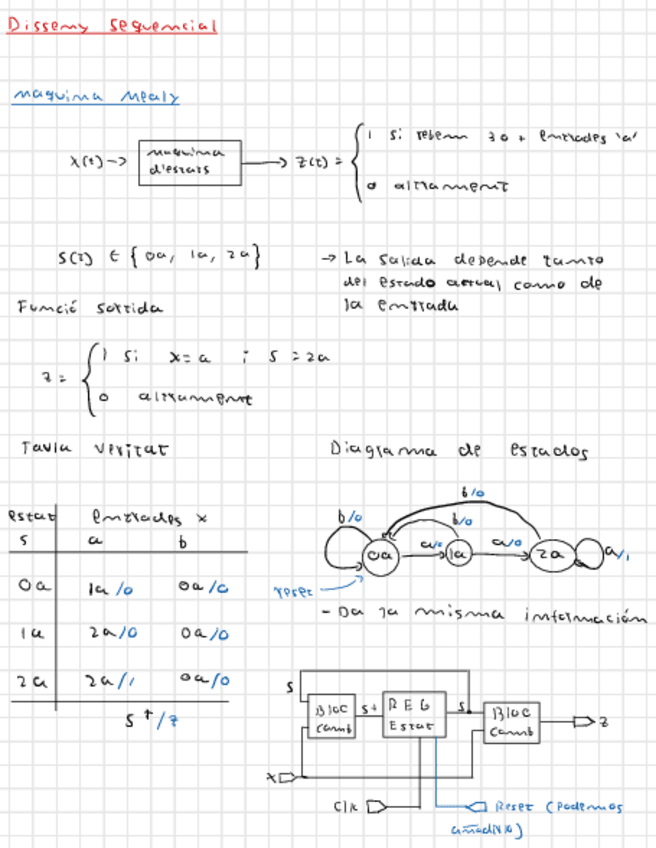 Disseny sequencial
maquina mealy
x(t) → maquina d'estats → z(t) = { 1 si rebem 3 o + entrades 'a'
0 altrament
s(t) ∈ {0a, 1a, 2a}
→ La salida depende tanto
del estado actual como de
la entrada
Funció sortida
z = { 1 si x=a i s=2a
0 altrament
Taula veritat
estat entrades x
s a b
0a 1a/0 0a/0
1a 2a/0 0a/0
2a 2a/1 0a/0
s+/z
Diagrama de estados
b/0
b/0 b/0
0a a/0 1a a/0 2a a/1
reset
- Da la misma información
s
Bloc comb s+ REG Estat s Bloc comb z
x
Clk Reset (podemos
añadirlo)